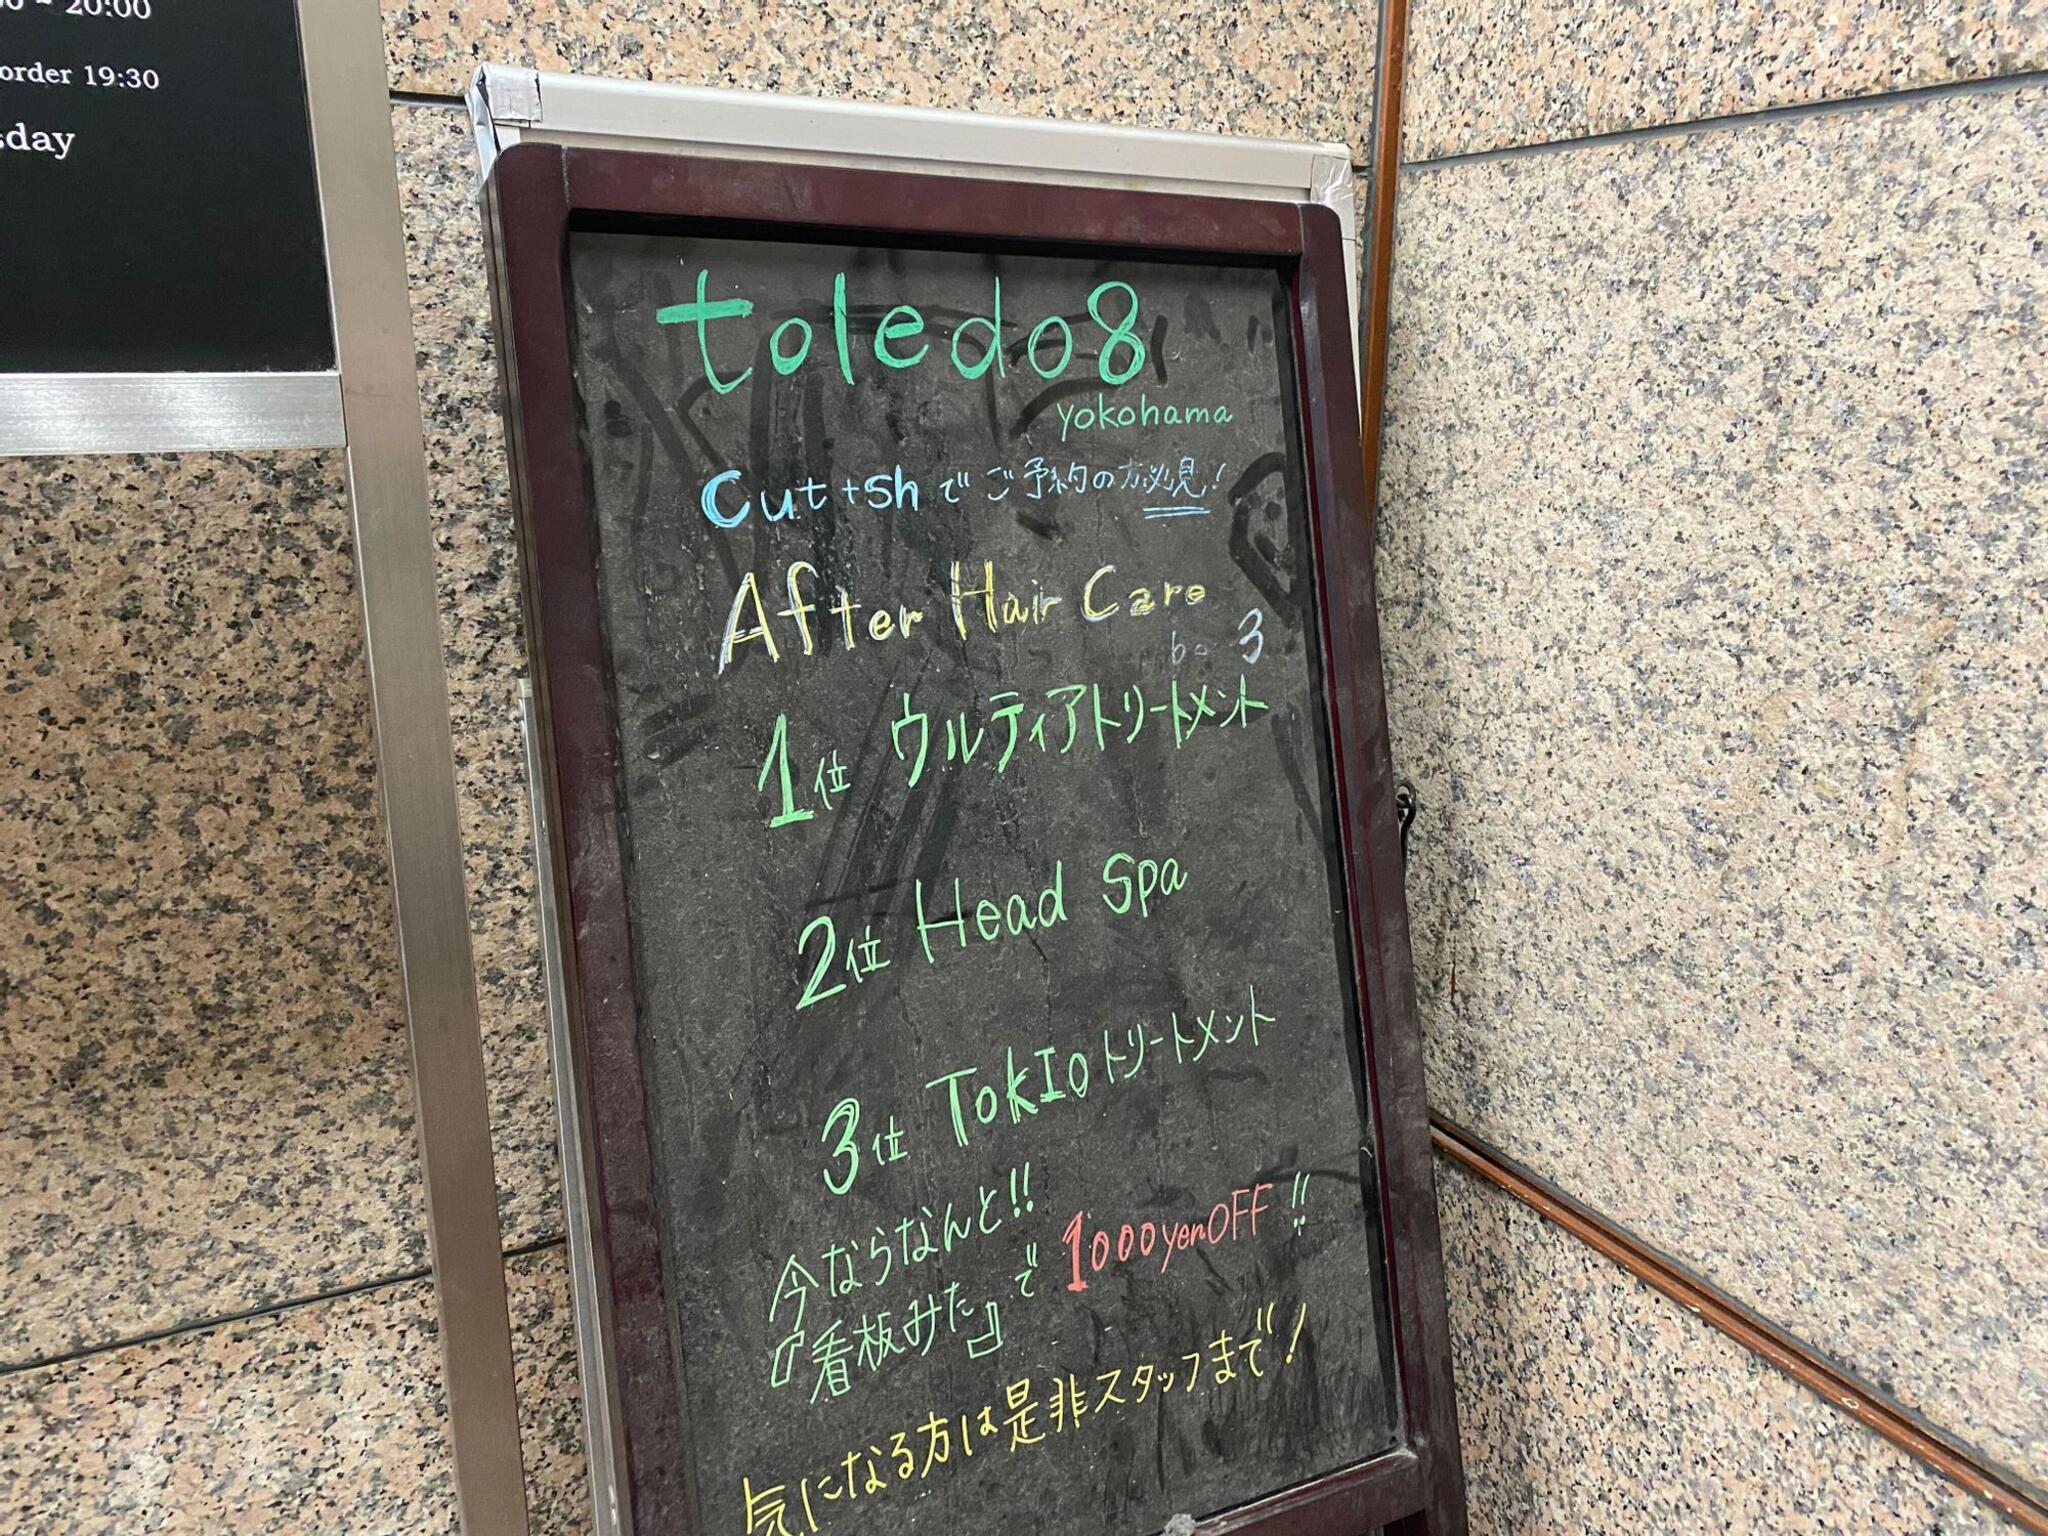 20:00
order 19:30
sday
toledo8
yokohama
Cut+shでご予約の方必見!
After Hair Care
3
1位 ウルティアトリートメント
2位 Head Spa
3位 TOKIOトリートメント
今ならなんと!!
『看板みた』で 1000yenOFF!!
気になる方は是非スタッフまで!